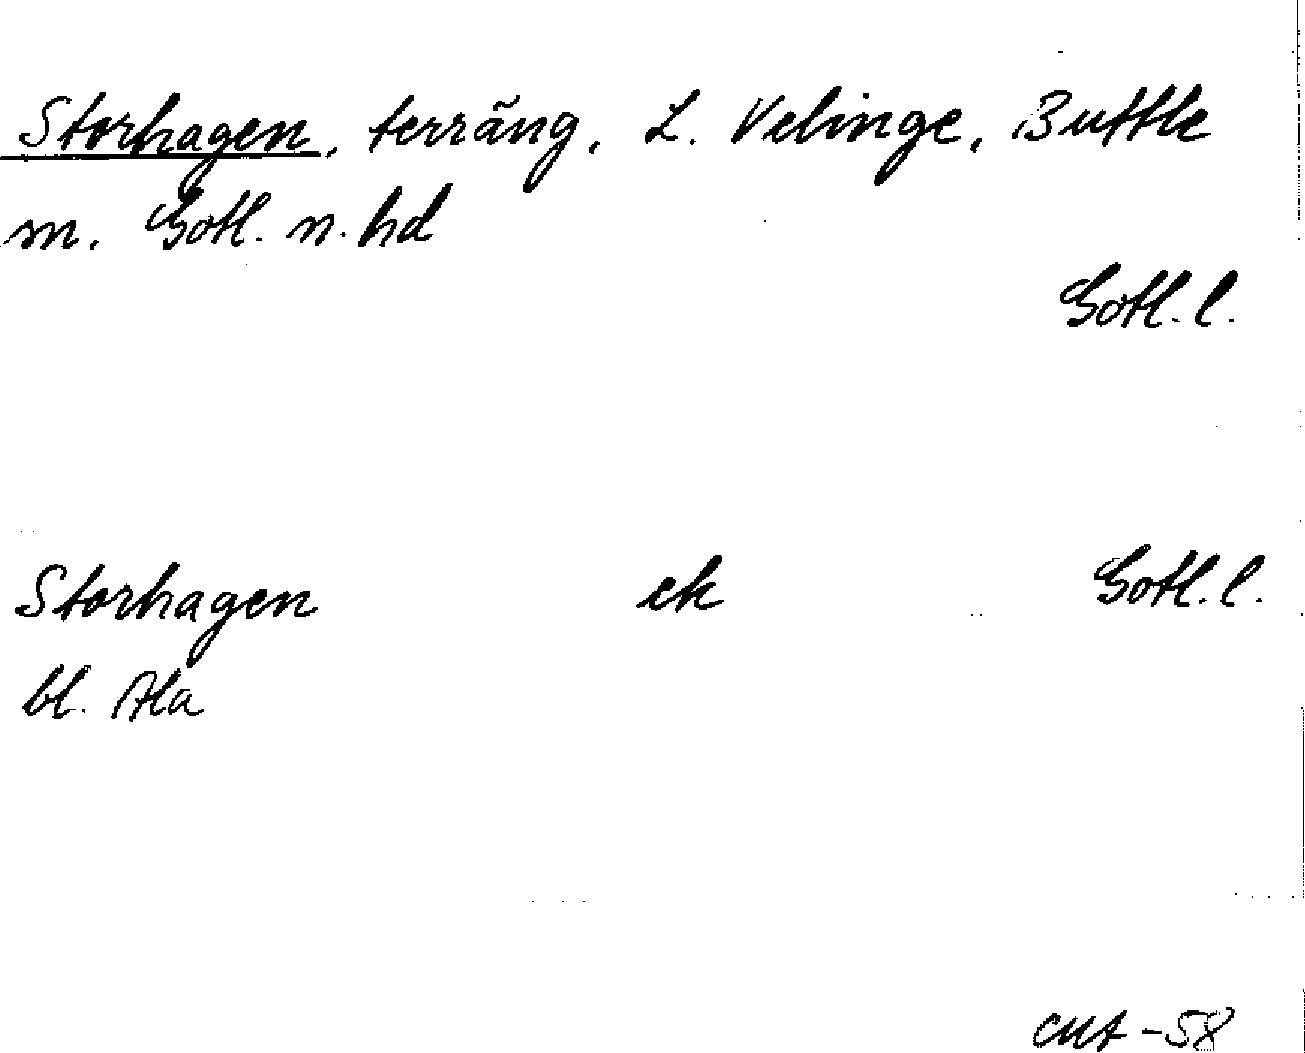 Storhagen, terräng, L. Velinge, Buttle
m. Gotl. n. hd
Gotl. l.
Storhagen ek Gotl. l.
bl. Ala
CMA -58